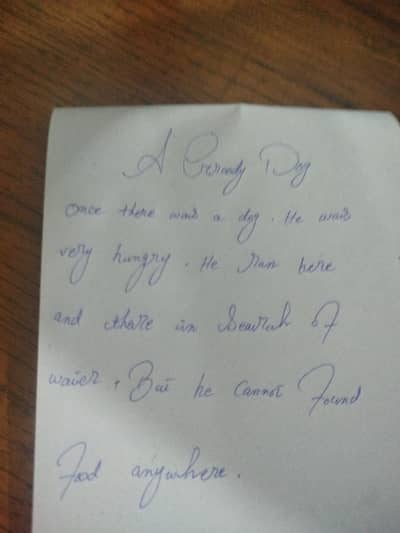 A Greedy Dog
Once there was a dog. He was
very hungry. He run here
and there in Search of
water, But he cannot Found
Food anywhere.